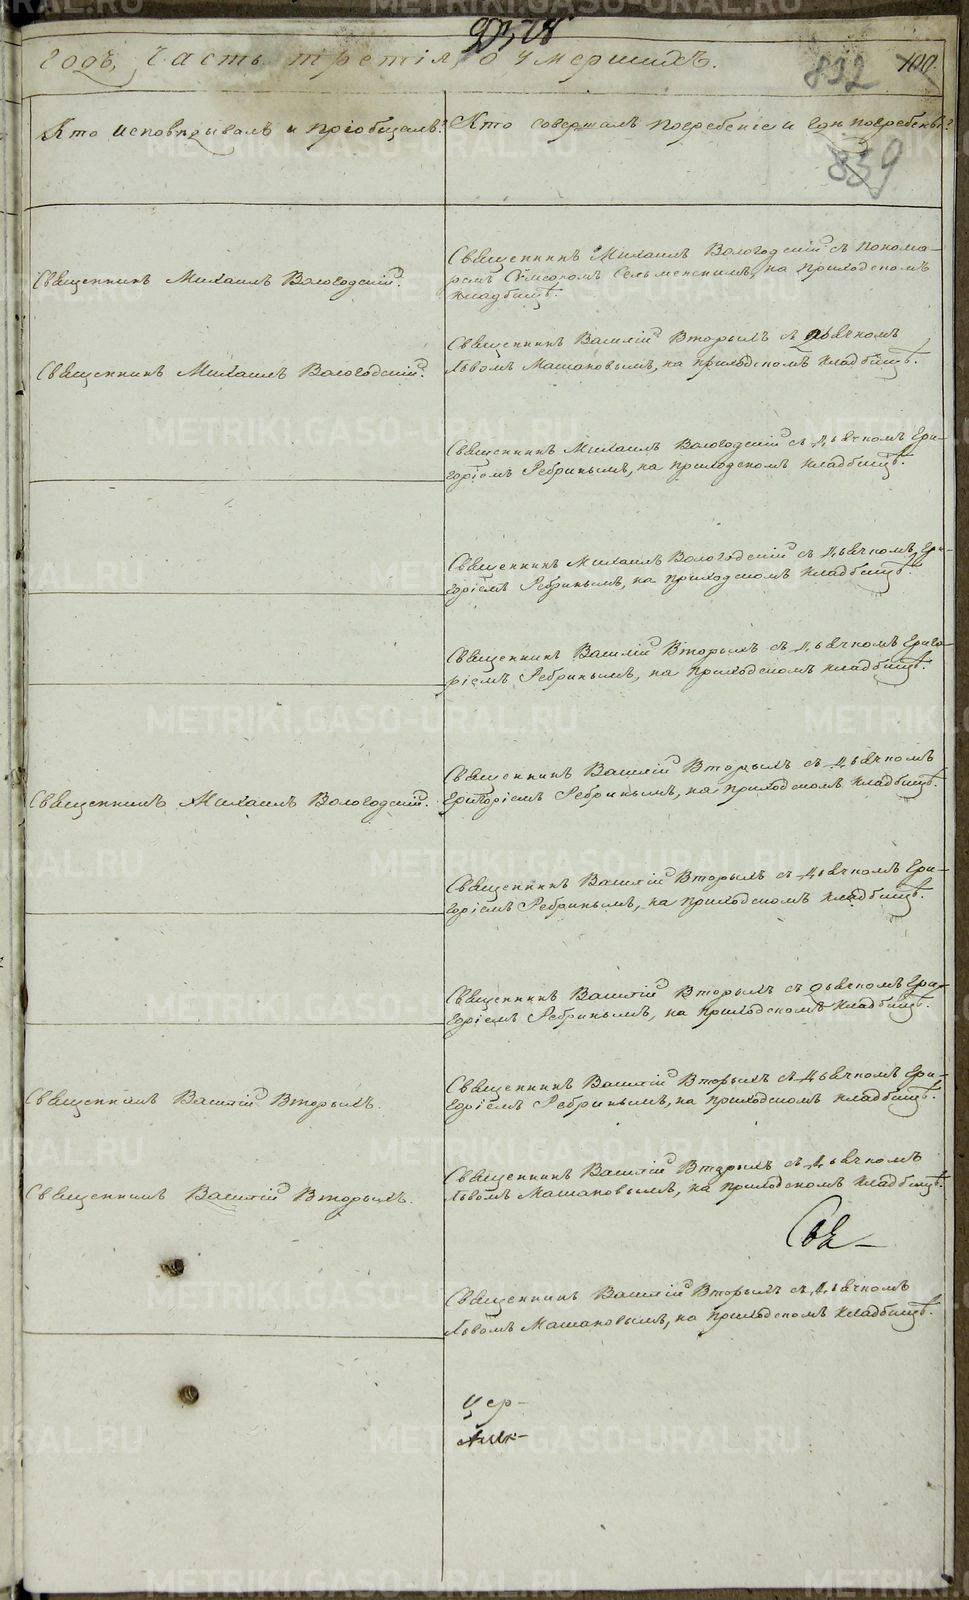 годъ, Часть третія, о умершихъ.
832
839
Кто исповѣдывалъ и пріобщалъ?
Кто совершалъ погребеніе и гдѣ погребены?
Священникъ Михаилъ Вологодскій.
Священникъ Михаилъ Вологодскій съ понома-
ремъ на приходскомъ
кладбищѣ.
Священникъ Михаилъ Вологодскій.
Священникъ Василій Вторыхъ съ дьячкомъ
Львомъ Машановымъ, на приходскомъ кладбищѣ.
Священникъ Михаилъ Вологодскій съ дьячкомъ Гри-
горіемъ Ребринымъ, на приходскомъ кладбищѣ.
Священникъ Михаилъ Вологодскій съ дьячкомъ Гри-
горіемъ Ребринымъ, на приходскомъ кладбищѣ.
Священникъ Василій Вторыхъ съ дьячкомъ Григо-
ріемъ Ребринымъ, на приходскомъ кладбищѣ.
Священникъ Михаилъ Вологодскій.
Священникъ Василій Вторыхъ съ дьячкомъ
Григоріемъ Ребринымъ, на приходскомъ кладбищѣ.
Священникъ Василій Вторыхъ съ дьячкомъ Гри-
горіемъ Ребринымъ, на приходскомъ кладбищѣ.
Священникъ Василій Вторыхъ съ дьячкомъ Гри-
горіемъ Ребринымъ, на приходскомъ кладбищѣ.
Священникъ Василій Вторыхъ.
Священникъ Василій Вторыхъ съ дьячкомъ Гри-
горіемъ Ребринымъ, на приходскомъ кладбищѣ.
Священникъ Василій Вторыхъ.
Священникъ Василій Вторыхъ съ дьячкомъ
Львомъ Машановымъ, на приходскомъ кладбищѣ.
Священникъ Василій Вторыхъ съ дьячкомъ
Львомъ Машановымъ, на приходскомъ кладбищѣ.
цер-
METRIKI.GASO-URAL.RU